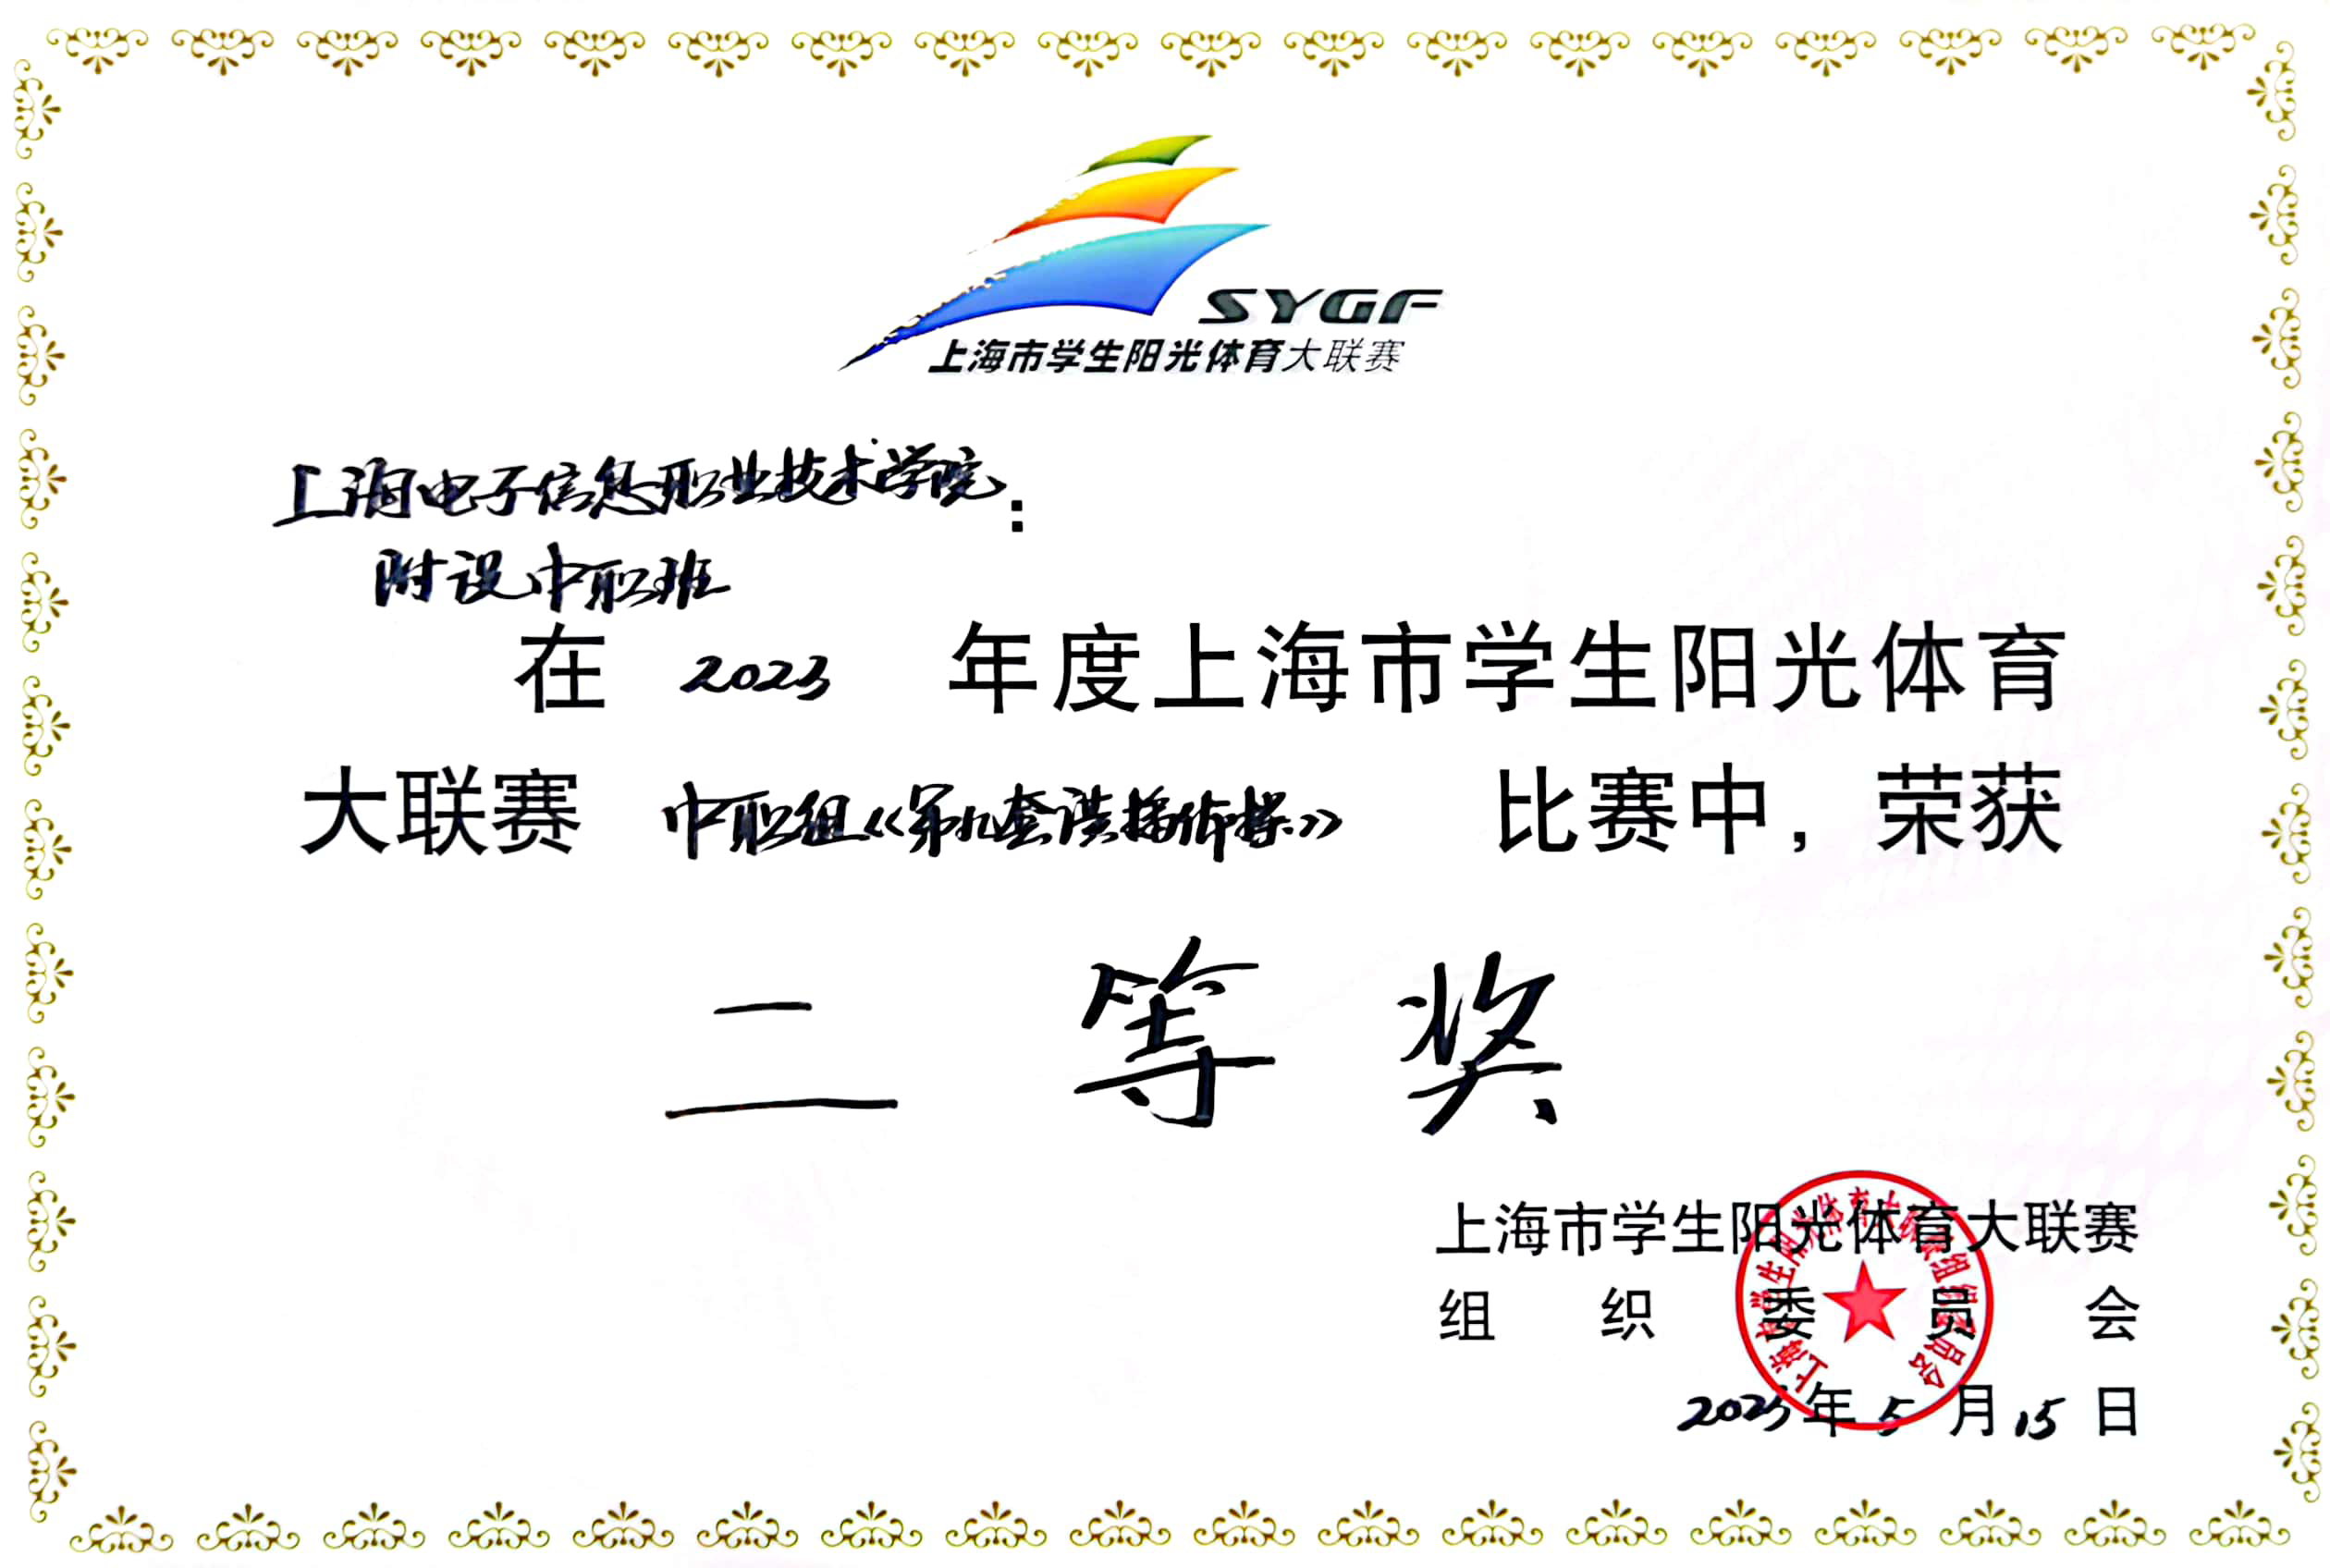 SYGF
上海市学生阳光体育大联赛
上海电子信息职业技术学院：
附设中职班
在 2023 年度上海市学生阳光体育
大联赛 中职组《第九套广播体操》 比赛中，荣获
二 等 奖
上海市学生阳光体育大联赛
组 织 委 员 会
2023年 5 月 15 日
上海市学生阳光体育大联赛组织委员会